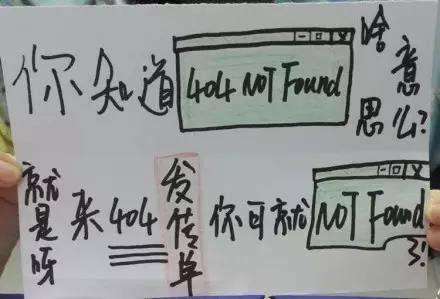 你知道 404 NOT Found 啥意思么?
就是呀 来404发传单 你可就 NOT Found 了!